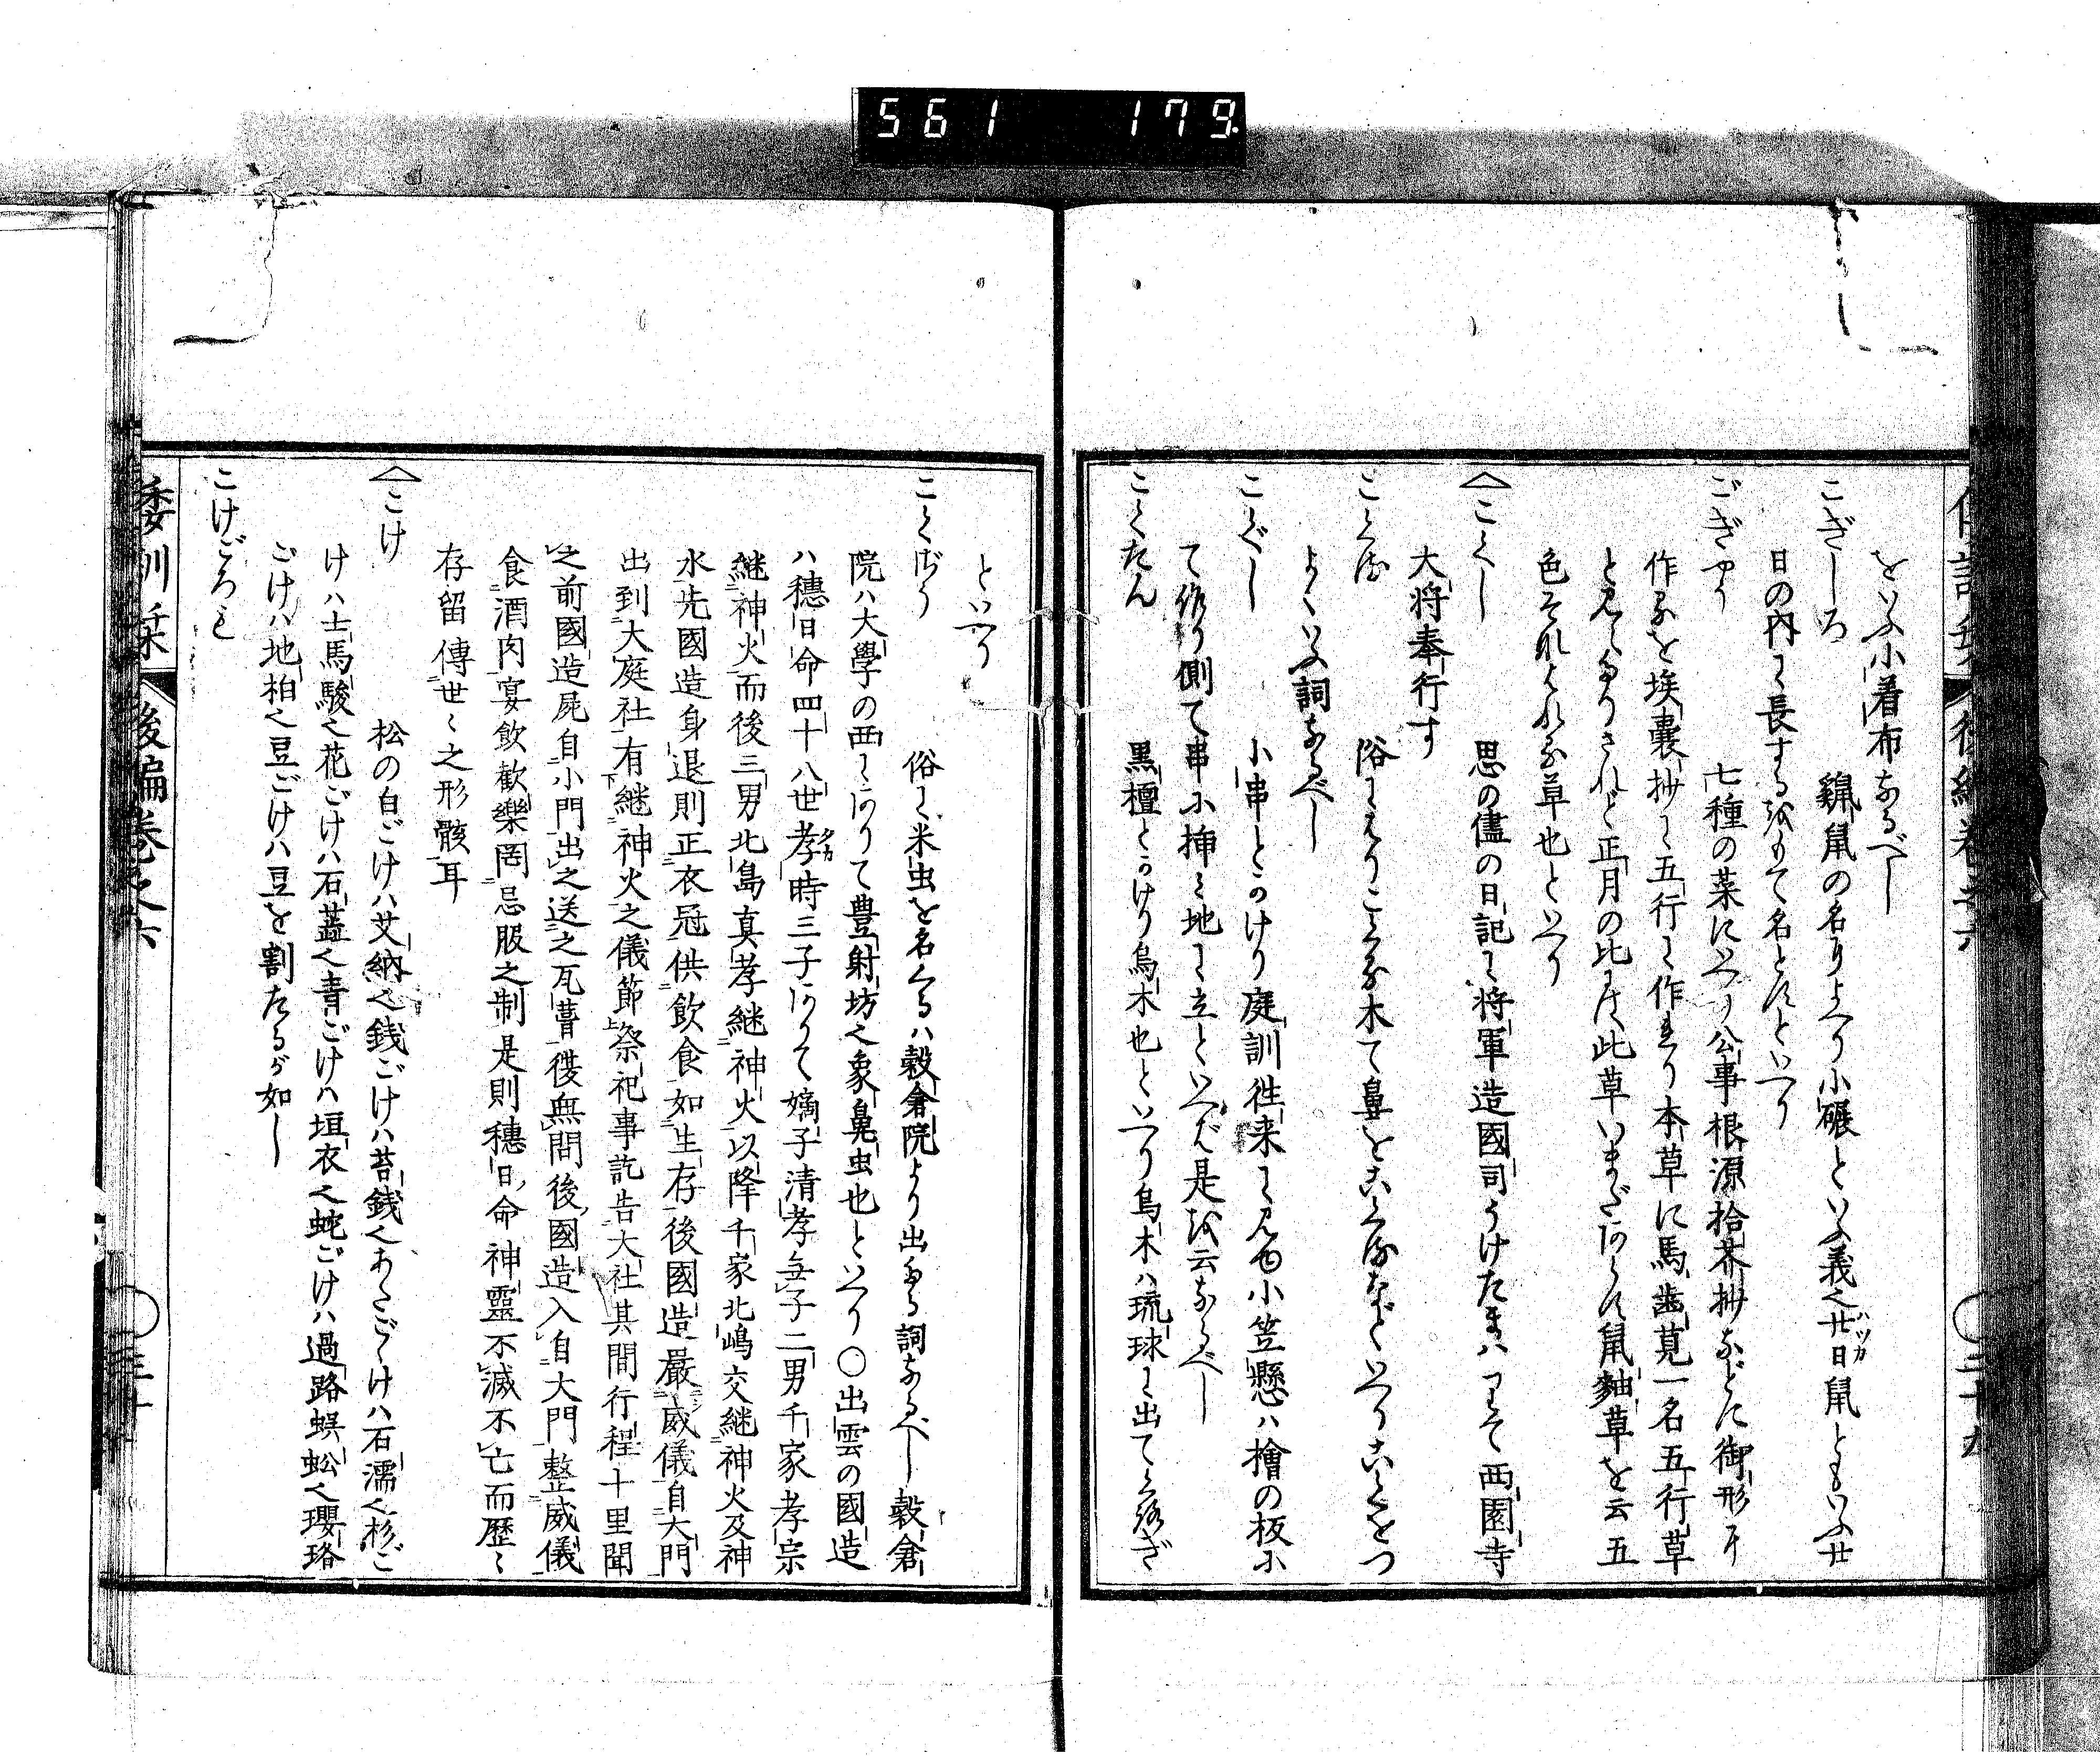 561 179
をいふ小着布なるべし
こざしろ 鼷鼠の名によべり小碾といふ義也廿日鼠ともいふ廿
ハツカ
日の內に長する故もて名とすといへり
ごぎやう 七種の菜にいへり公事根源拾芥抄などに御形に
作るを埃囊抄に五行に作れり本草に馬齒莧一名五行草
と見えたりされど正月の比には此草いまだあらず鼠麹草を云五
色それとれる草也といへり
こくし 思の儘の日記に將軍造國司うけたまハりて西園寺
大將奉行す
こくは 俗にはりこくる木て鼻をこくるなどいへりこくをつ
よくいふ詞なるべし
こぐし 小串とかけり庭訓徃来に見ゆ小笠懸ハ檜の板に
て作り側て串に揷み地に立といへば是を云なるべし
こくたん 黒檀とかけり烏木也といへり烏木ハ琉球に出てくろぎ
といへり
こくざう 俗に米虫を名くるハ穀倉院より出たる詞なるべし穀倉
院ハ大學の西にありて豊射坊之象鼻虫也といへり〇出雲の國造
ハ穗日命四十八世孝時三子ありて嫡子清孝無子二男千家孝宗
タカ
継神火而後三男北島真孝継神火以降千家北嶋交継神火及神
水先國造身退則正衣冠供飲食如生存後國造嚴威儀自大門
出到大庭社有継神火之儀節祭祀事訖告大社其間行程十里聞
之前國造屍自小門出之送之瓦葺後無間後國造入自大門整威儀
食酒肉宴飲歓樂罔忌服之制是則穗日命神靈不滅不亡而歷ヽ
存留傳世ヽ之形骸耳
こけ 松の白ごけハ艾納也錢ごけハ苔錢也あくごけハ石濡也杉ご
けハ士馬駿也花ごけハ石蕋也青ごけハ垣衣也蛇ごけハ過路蜈蚣也瓔珞
ごけハ地柏也豆ごけハ豆を割たるが如し
こけごろも
倭訓栞 後編巻之六